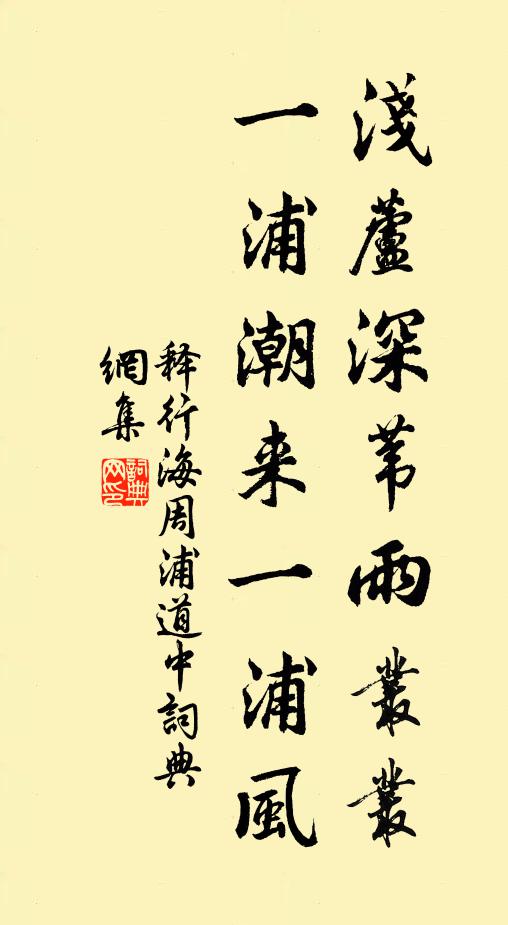 淺蘆深苇雨叢叢
一浦潮来一浦風
释行海周浦道中詞典
網集
詞典
网印